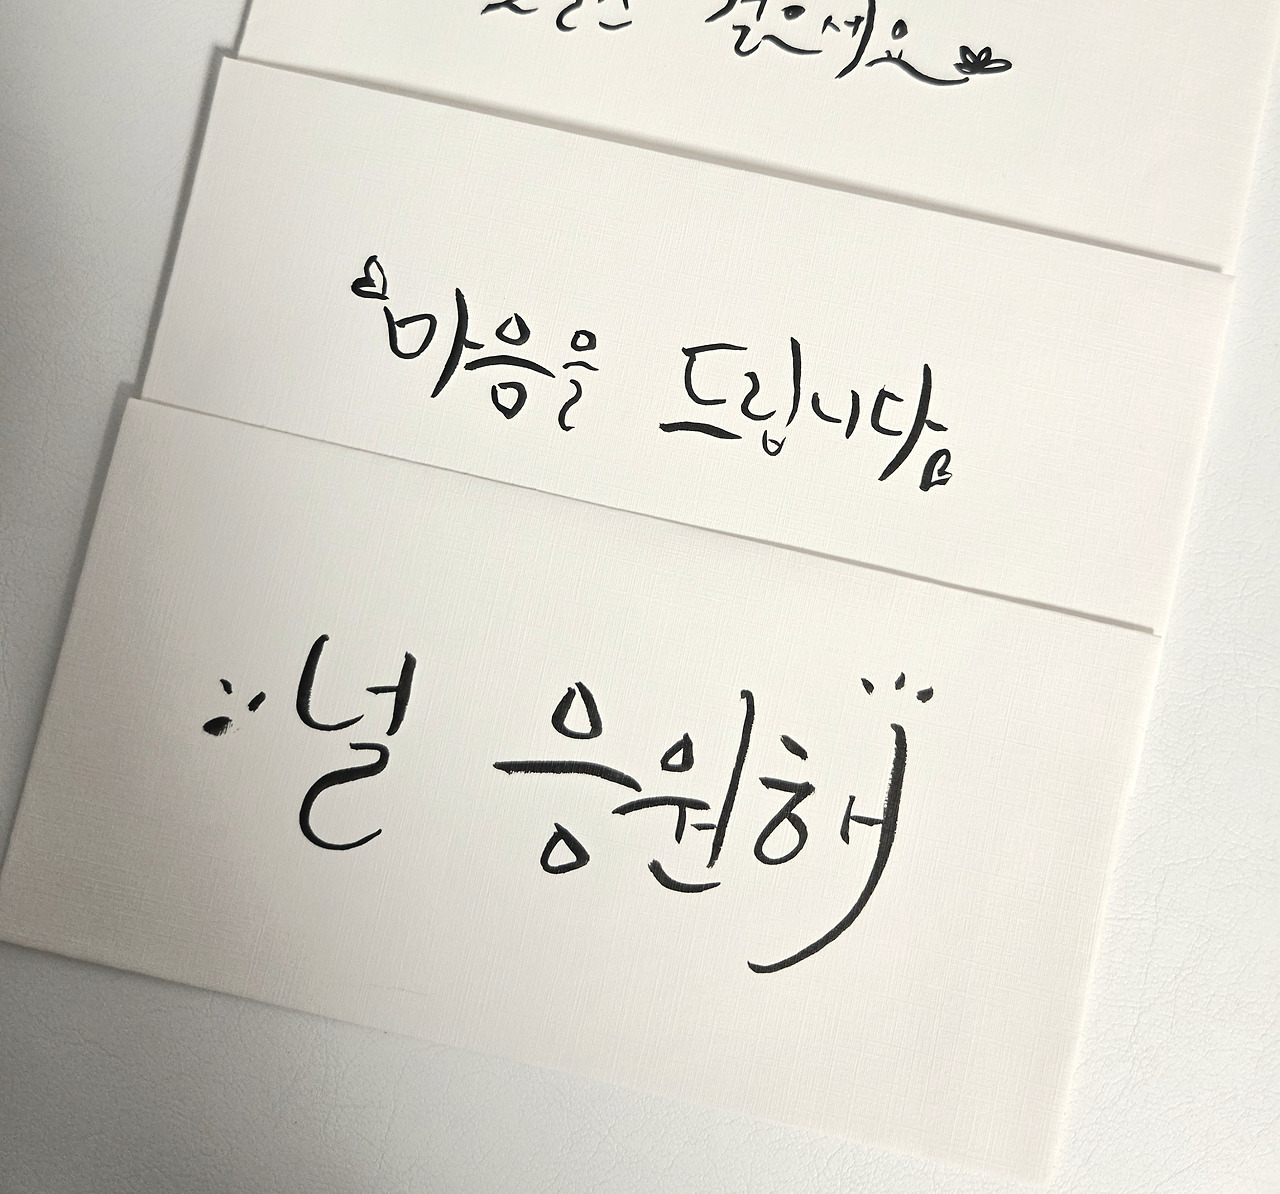 걸으세요
마음을 드립니다
널 응원해